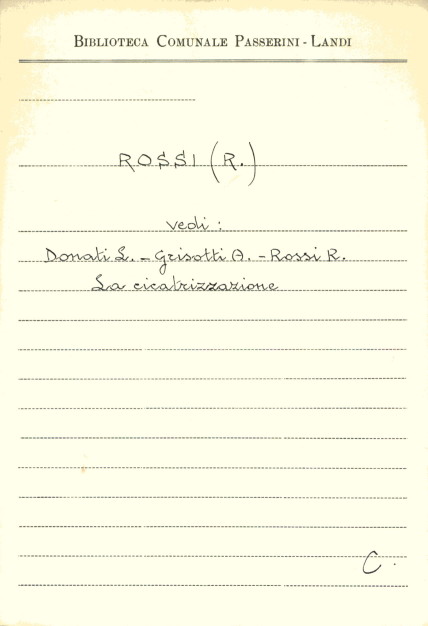 BIBLIOTECA COMUNALE PASSERINI - LANDI
ROSSI (R.)
vedi :
Donati L. - Grisotti A. - Rossi R.
La cicatrizzazione
C.